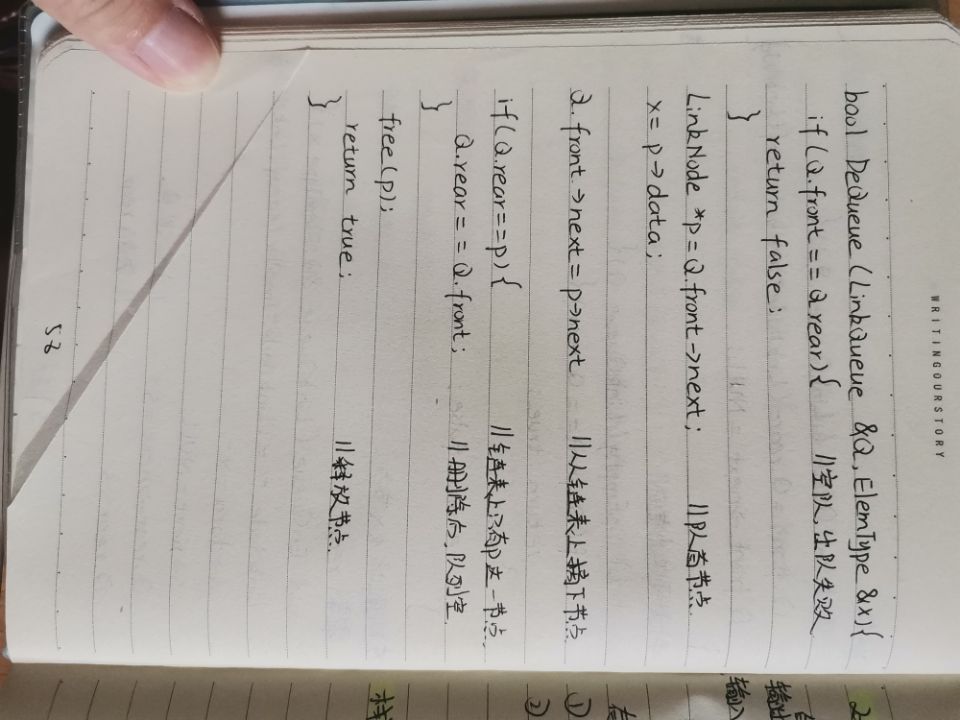 WRITINGOURSTORY
bool DeQueue (LinkQueue &Q, ElemType &x){
if(Q.front == Q.rear){ //空队,出队失败
return false;
}
LinkNode *p=Q.front->next; //队首节点
x=p->data;
Q.front->next=p->next //从链表上摘下节点
if(Q.rear==p){ //链表上只有p这一节点
Q.rear==Q.front; //删除后,队列空
}
free(p);
return true; //释放节点
}
58
输入
输出
①
②